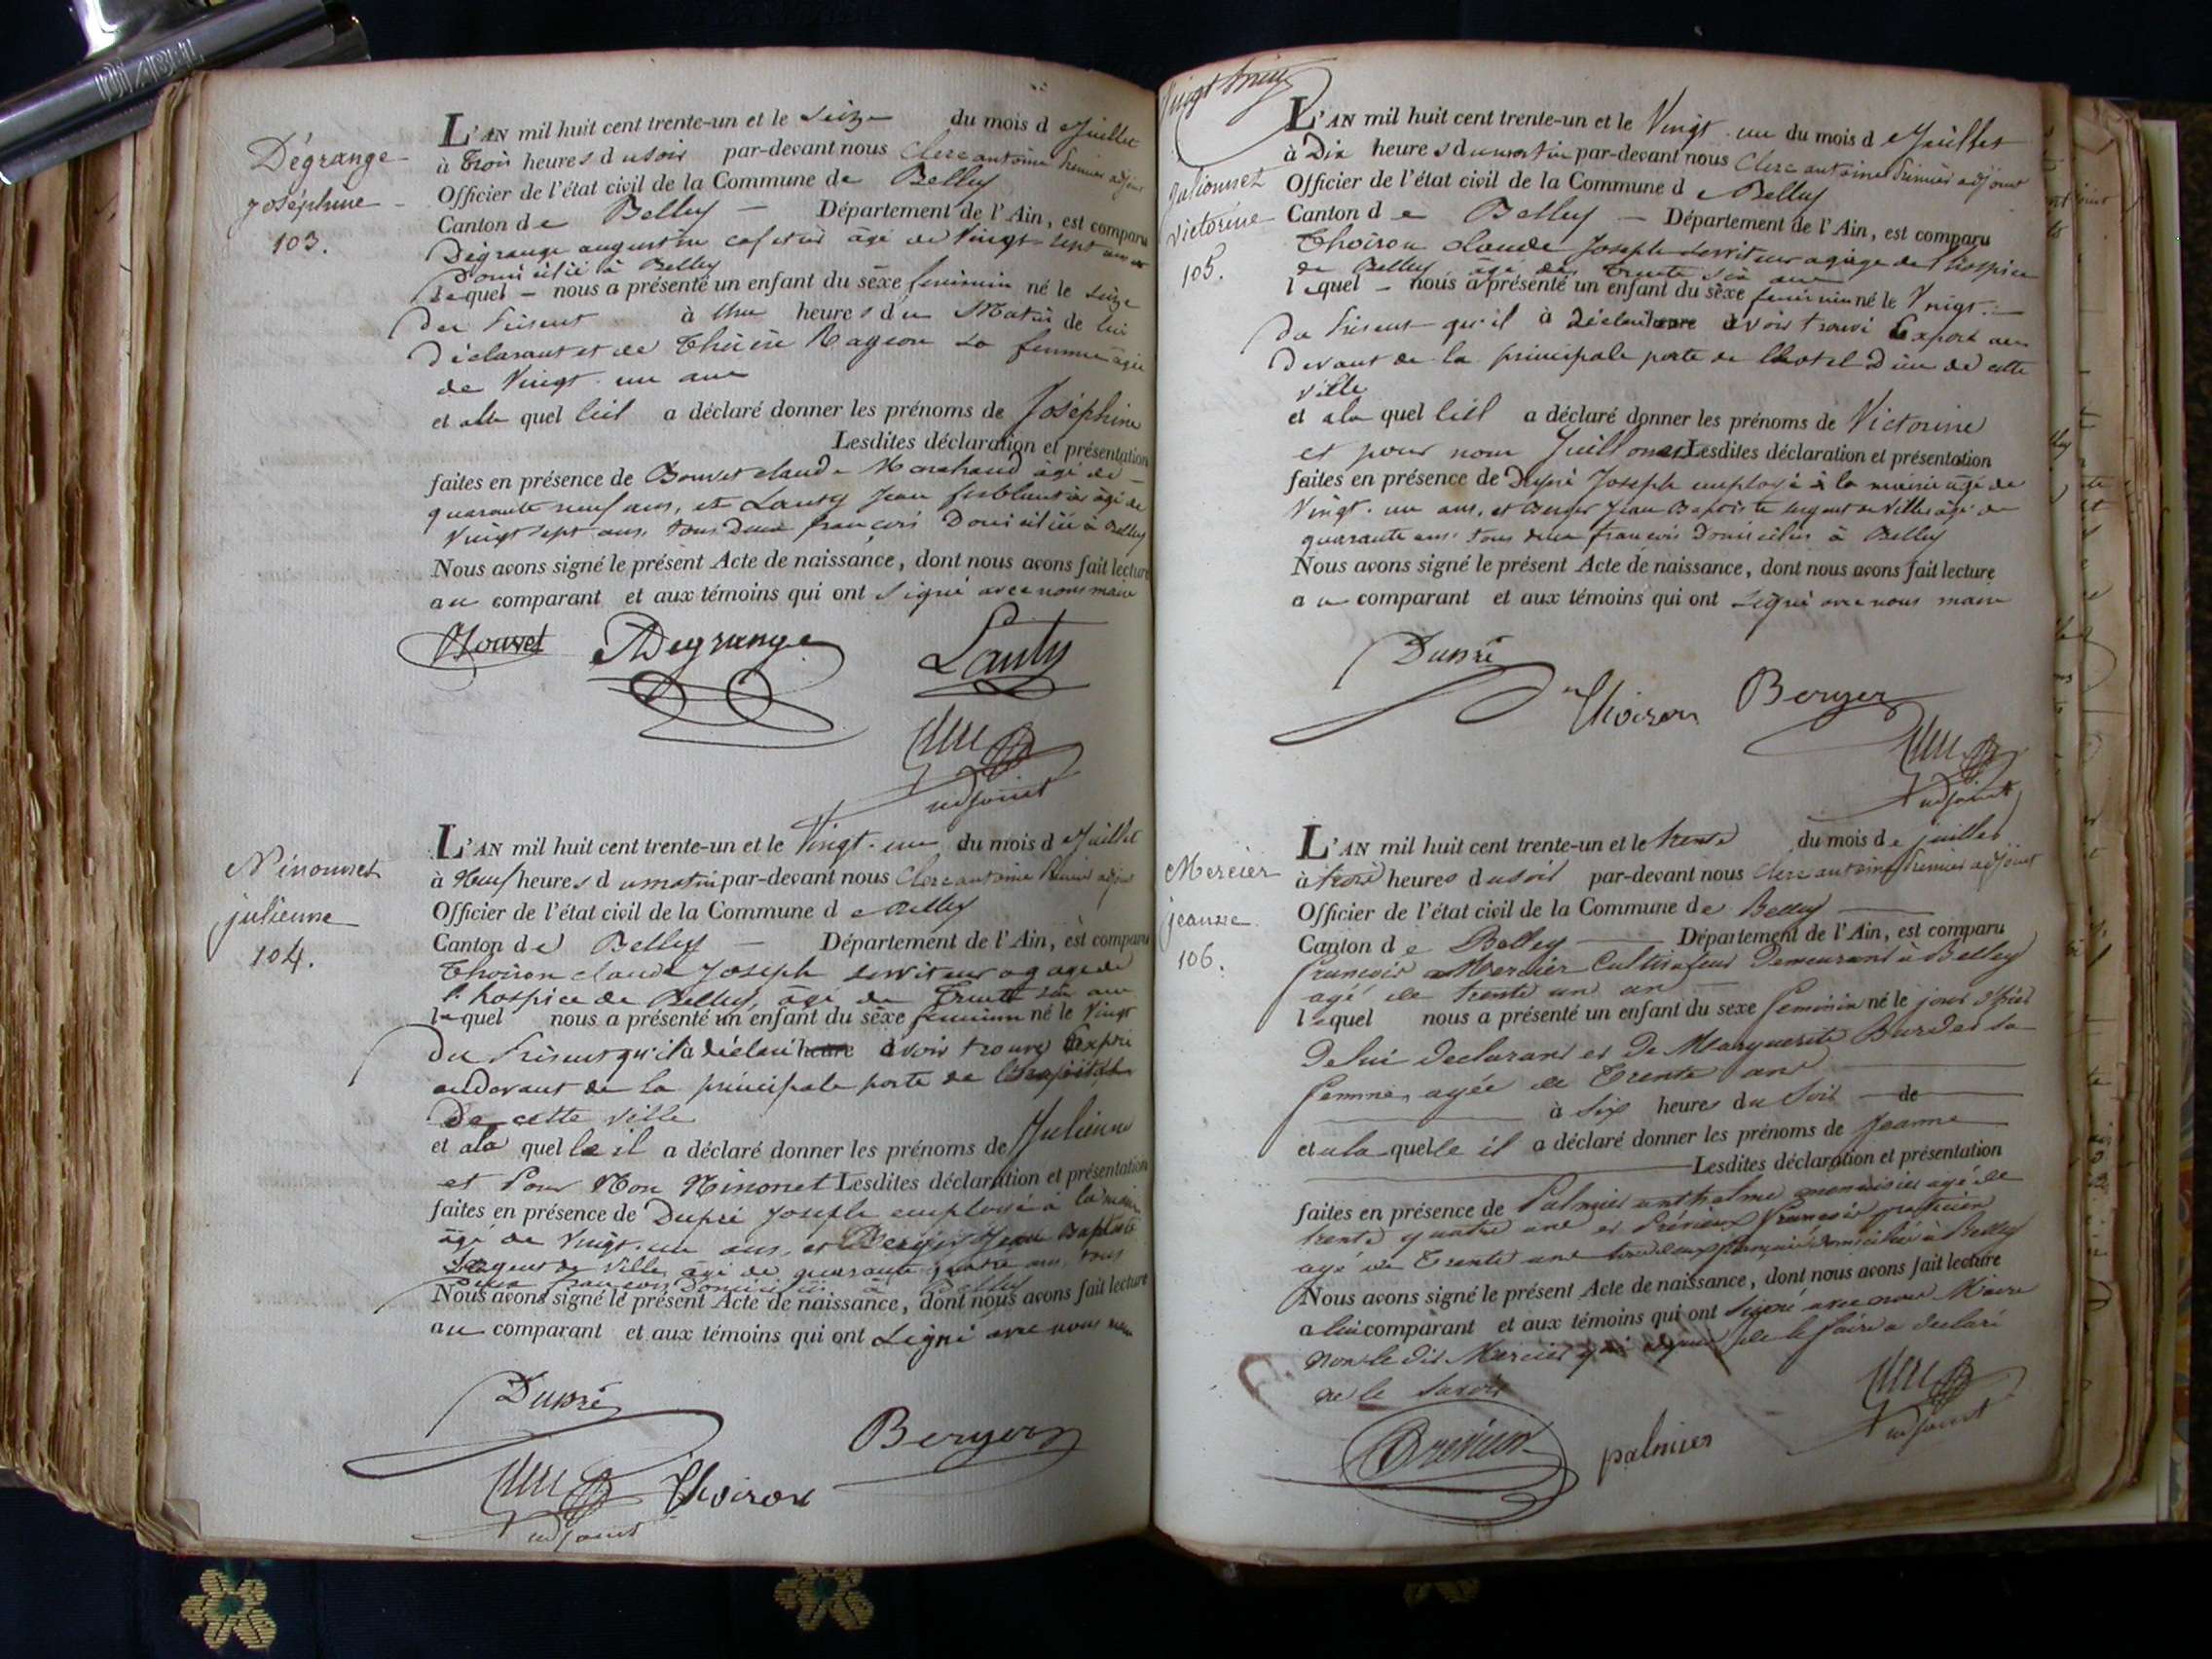 Dégrange
Joséphine
103.
L'AN mil huit cent trente-un et le seize du mois de Juillet
à trois heures du soir par-devant nous Clerc antoine premier adjoint
Officier de l'état civil de la Commune de Belley
Canton de Belley — Département de l'Ain, est comparu
Dégrange augustin cafetier âgé de vingt-sept ans
Domicilié à Belley
lequel — nous a présenté un enfant du sèxe feminin né le seize
du présent à une heures du Matin de lui
Déclarant et de Sa femme agée
de Vingt-un ans
et a la quel lêil a déclaré donner les prénoms de Joséphine
Lesdites déclaration et présentation
faites en présence de Bouvet claude Marchand âgé de
quarante neuf ans, et Lauty Jean ferblantier âgé de
Vingt sept ans, tous Deux françois Domiciliés à Belley
Nous avons signé le présent Acte de naissance, dont nous avons fait lecture
au comparant et aux témoins qui ont signé avec nous maire
Bouvet ADegrange Lauty
Clerc
adjoint
Ninonnet
julienne
104.
L'AN mil huit cent trente-un et le Vingt-un du mois de Juillet
à Neuf heures du matin par-devant nous Clerc antoine premier adjoint
Officier de l'état civil de la Commune de Belley
Canton de Belley — Département de l'Ain, est comparu
Thoiron claude Joseph serviteur agage de
l'hospice de Belley, âgé de trente six ans
lequel nous a présenté un enfant du sèxe feminin né le Vingt
du présent qu'il a déclaré heure avoir trouvé Exposé
audevant de la principale porte de l'hopital
De cette ville
et ala quel le il a déclaré donner les prénoms de Julienne
et Pour Nom Ninonet Lesdites déclaration et présentation
faites en présence de Dupré Joseph employé à la mairie
âgé de Vingt-un ans, et Berger Jean Baptiste
Sergent de Ville, âgé de quarante quatre ans, tous
Deux françois Domiciliés à Belley
Nous avons signé le présent Acte de naissance, dont nous avons fait lecture
au comparant et aux témoins qui ont signé avec nous maire
Dupré
Berger
Clerc Thoiron
adjoint
Vingt
Julionnet
Victorine
105.
L'AN mil huit cent trente-un et le Vingt-un du mois de Juillet
à Dix heures du matin par-devant nous Clerc antoine premier adjoint
Officier de l'état civil de la Commune de Belley
Canton de Belley — Département de l'Ain, est comparu
Thoiron claude Joseph serviteur agage de l'hospice
de Belley âgé de trente six ans
lequel — nous a présenté un enfant du sèxe feminin né le Vingt
du présent qu'il à déclaré heure avoir trouvé Exposé au
Devant de la principale porte de lhotel Dieu de cette
ville
et ala quel lêil a déclaré donner les prénoms de Victorine
et pour nom Juillonet Lesdites déclaration et présentation
faites en présence de Dupré Joseph employé à la mairie âgé de
Vingt-un ans, et Berger Jean Baptiste sergent de Ville âgé de
quarante ans tous deux françois Domiciliés à Belley
Nous avons signé le présent Acte de naissance, dont nous avons fait lecture
au comparant et aux témoins qui ont signé avec nous maire
Dupré
Thoiron Berger
Clerc
adjoint
Mercier
jeanne
106.
L'AN mil huit cent trente-un et le trente du mois de juillet
à trois heures du soir par-devant nous Clerc antoine premier adjoint
Officier de l'état civil de la Commune de Belley
Canton de Belley — Département de l'Ain, est comparu
françois Mercier Cultivateur Demeurant à Belley
agé de trente un an
lequel nous a présenté un enfant du sexe feminin né le jour d'hier
De lui declarant et De Marguerite Burdet sa
femme, agée de Trente ans
à six heures du soir de
et a la quelle il a déclaré donner les prénoms de Jeanne
Lesdites déclaration et présentation
faites en présence de Palmier anthelme menuisier agé de
trente quatre ans et Prévieux François praticien
agé de Trente ans tous deux français domiciliés à Belley
Nous avons signé le présent Acte de naissance, dont nous avons fait lecture
a lui comparant et aux témoins qui ont signé avec nous Maire
non le dit Mercier qui requis de le faire a declaré
ne le savoir
Clerc
adjoint
Prévieux palmier